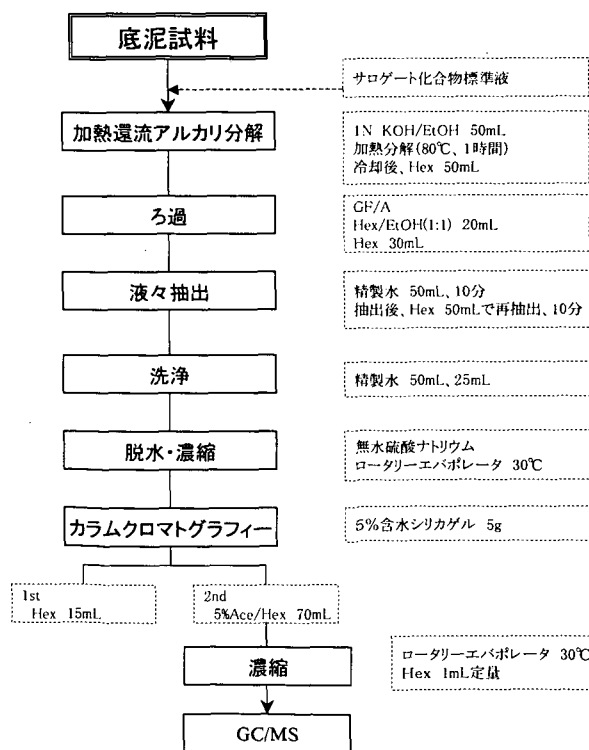 底泥試料
サロゲート化合物標準液
加熱還流アルカリ分解
1N KOH/EtOH 50mL
加熱分解(80℃、1時間)
冷却後、Hex 50mL
ろ過
GF/A
Hex/EtOH(1:1) 20mL
Hex 30mL
液々抽出
精製水 50mL、10分
抽出後、Hex 50mLで再抽出、10分
洗浄
精製水 50mL、25mL
脱水・濃縮
無水硫酸ナトリウム
ロータリーエバポレータ 30℃
カラムクロマトグラフィー
5%含水シリカゲル 5g
1st
Hex 15mL
2nd
5%Ace/Hex 70mL
濃縮
ロータリーエバポレータ 30℃
Hex 1mL定量
GC/MS